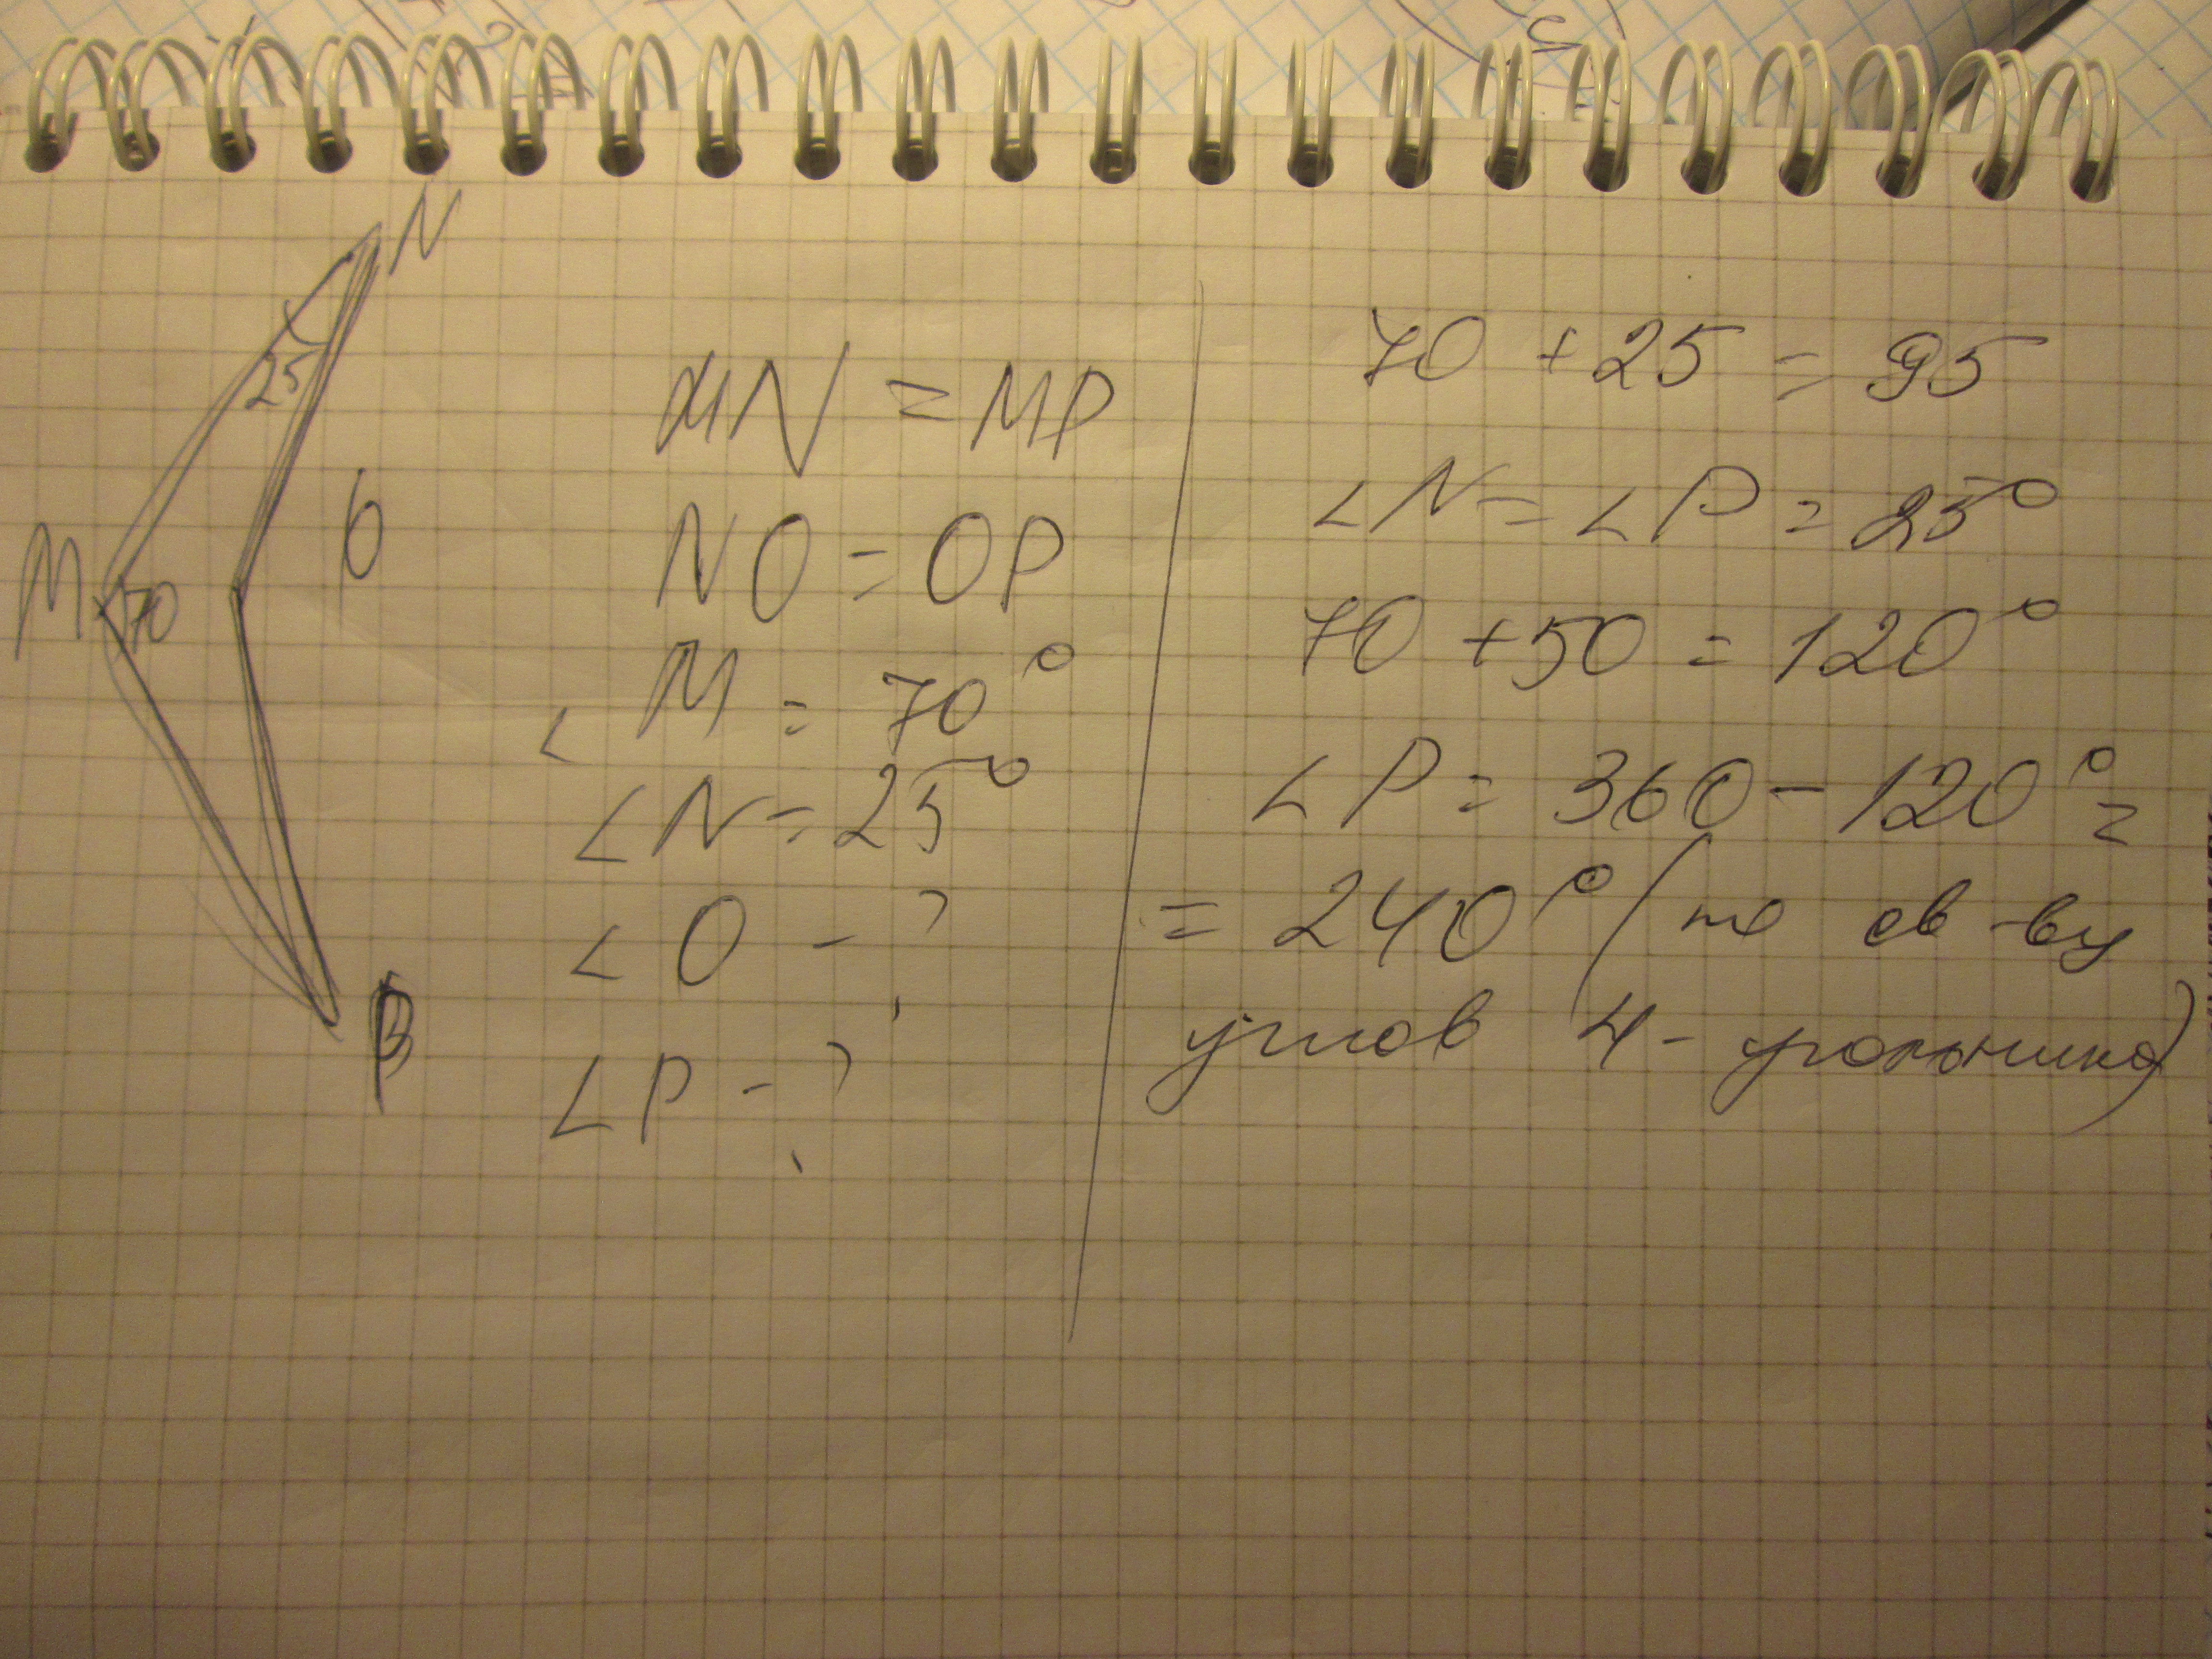 N
25
M 70
O
P
MN = MP
NO = OP
∠M = 70°
∠N = 25°
∠O - ?
∠P - ?
70 + 25 = 95
∠N = ∠P = 25°
70 + 50 = 120°
∠P = 360 - 120° =
= 240° (по св-ву
углов 4-угольника)